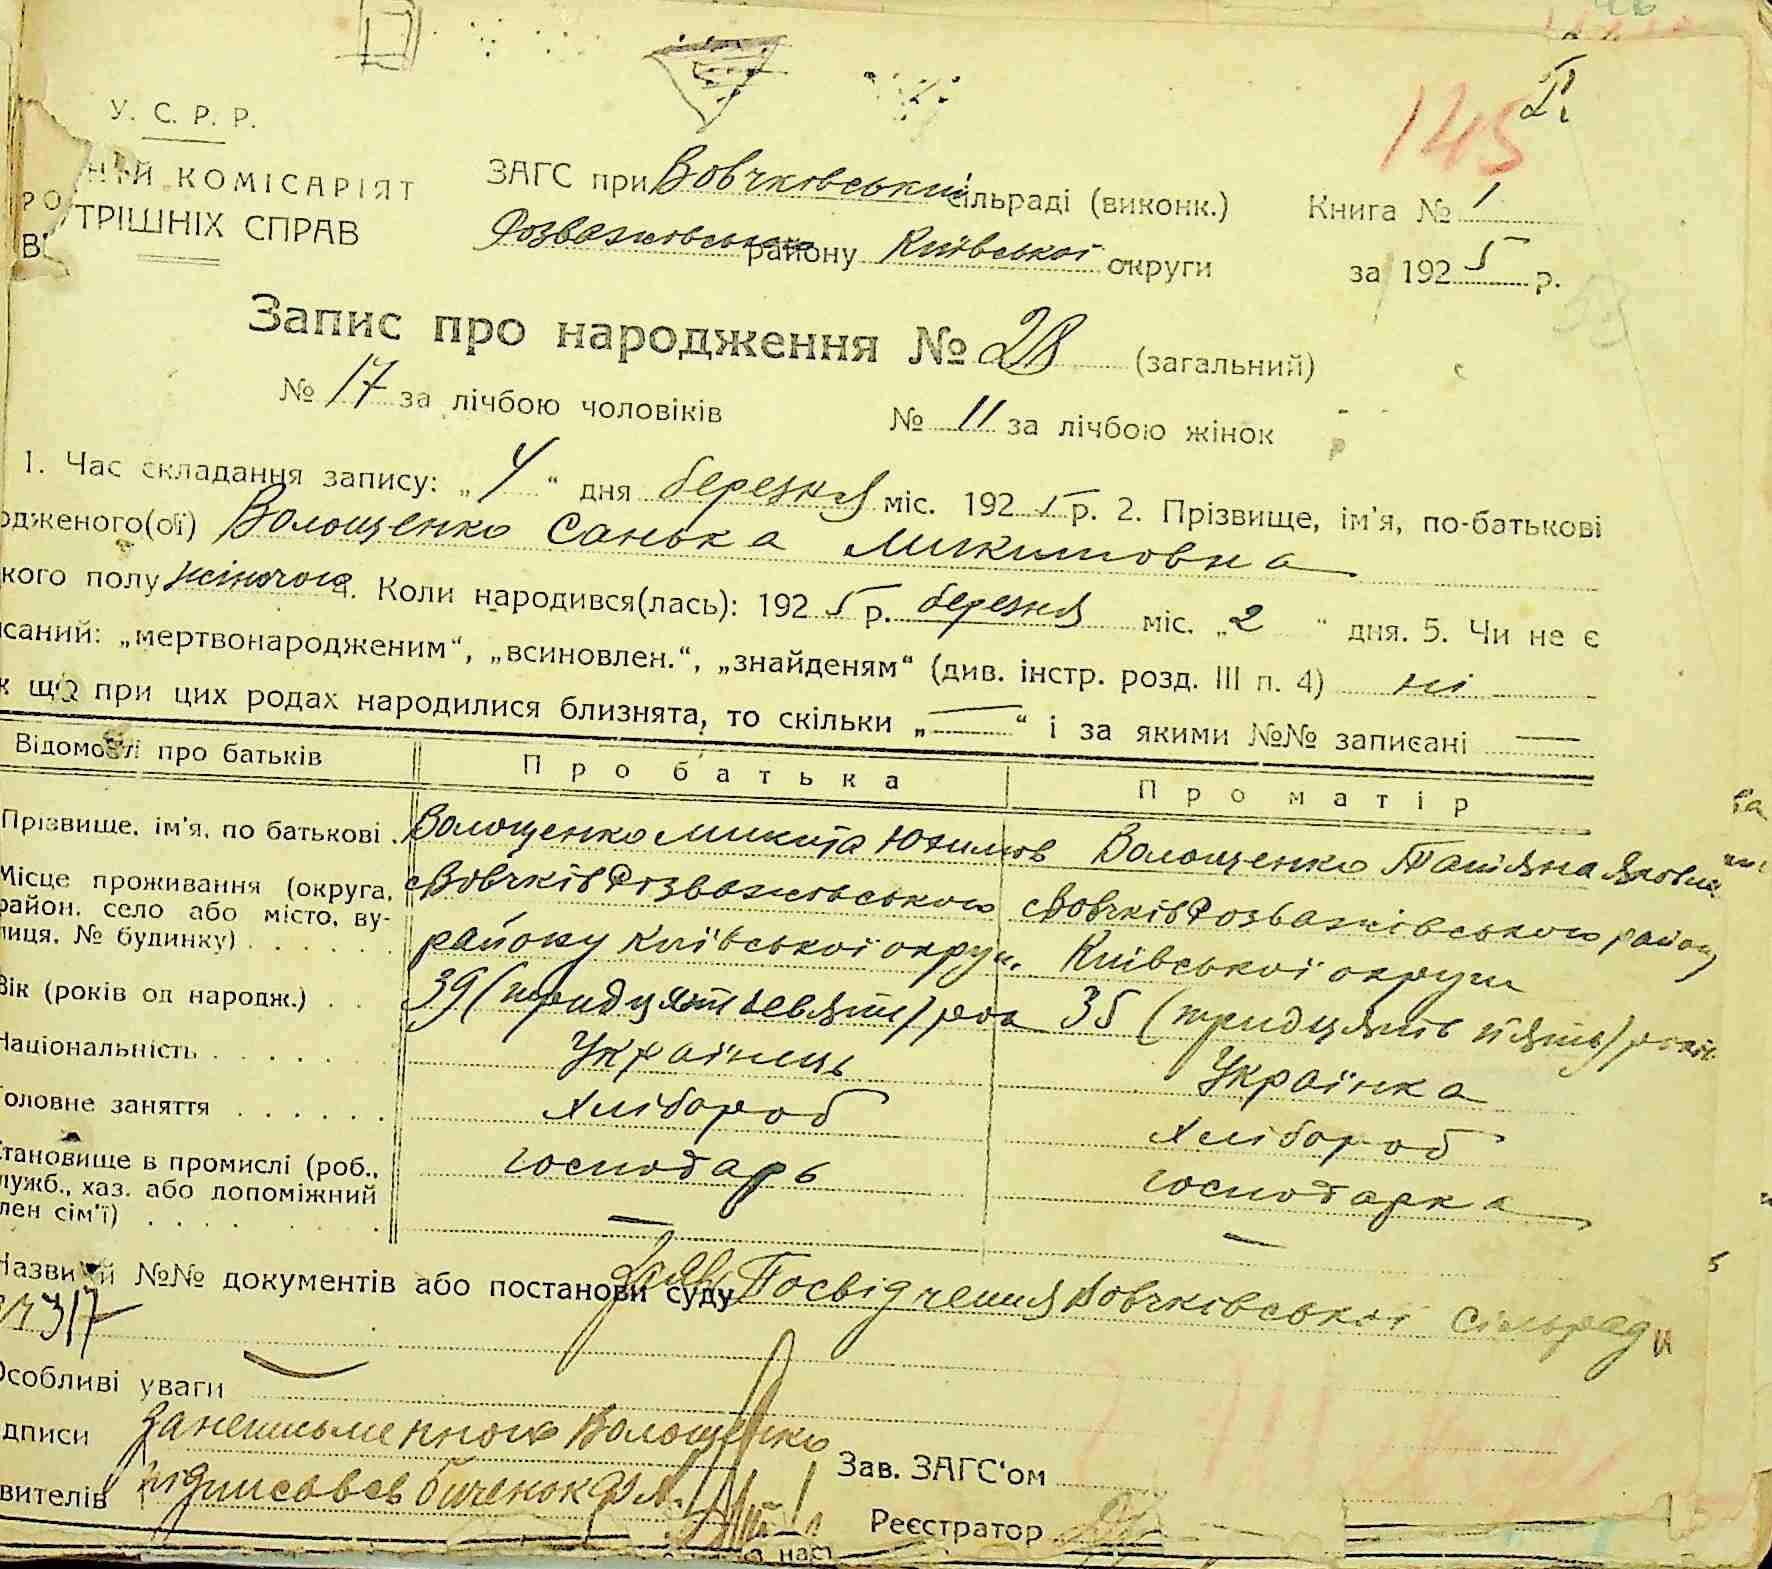 145
У. С. Р. Р.
НИЙ КОМІСАРІЯТ
ТРІШНІХ СПРАВ
ЗАГС при Вовчківський сільраді (виконк.)
Розважівського району Київської округи
Книга № 1
за 1925 р.
Запис про народження № 28 (загальний)
№ 17 за лічбою чоловіків № 11 за лічбою жінок
1. Час складання запису: „4“ дня березня міс. 1925 р. 2. Прізвище, ім'я, по-батькові
одженого(ої) Волощенко Санька Микитовна
кого полу жіночого. Коли народився(лась): 1925 р. березня міс. „2“ дня. 5. Чи не є
исаний: „мертвонародженим“, „всиновлен.“, „знайденям“ (див. інстр. розд. III п. 4) ні
к що при цих родах народилися близнята, то скільки „—“ і за якими №№ записані —
Відомості про батьків Про батька Про матір
Прізвище, ім'я, по батькові . Волощенко Микита Юхимов Волощенко Татіяна Яковна
Місце проживання (округа, с Вовчків Розважовського с Вовчків Розважівського району
район, село або місто, ву-
лиця, № будинку) . . . . . . району Київської округи. Київської округи
Вік (років од народж.) . . 39 (тридцять девять) рок 35 (тридцять пять) років
Національність . . . . . . . Українець Українка
Головне заняття . . . . . . Хлібороб Хлібороб
Становище в промислі (роб., господарь господарка
служб., хаз. або допоміжний
лен сім'ї) . . . . . . . . — —
Назви й №№ документів або постанови суду Посвідчення Вовчківської Сільради
№ 317
Особливі уваги —
дписи За неписьменного Волощенко
вителів підписався
Зав. ЗАГС'ом
Реєстратор